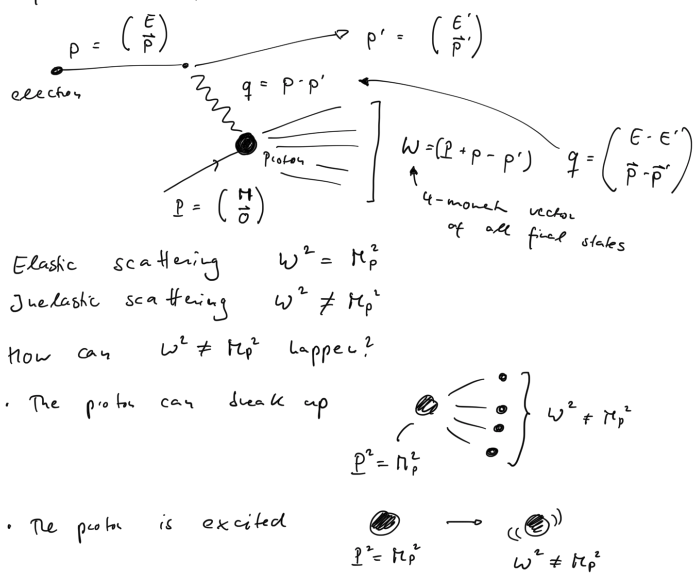 p = ( E p⃗ )
p' = ( E' p⃗' )
electron
q = p - p'
Proton
W = (P + p - p')
q = ( E - E' p⃗ - p⃗' )
P = ( M 0⃗ )
4-moment vector
of all final states
Elastic scattering W² = Mp²
Inelastic scattering W² ≠ Mp²
How can W² ≠ Mp² happen?
• The proton can break up
W² ≠ Mp²
P² = Mp²
• The proton is excited
P² = Mp²
W² ≠ Mp²